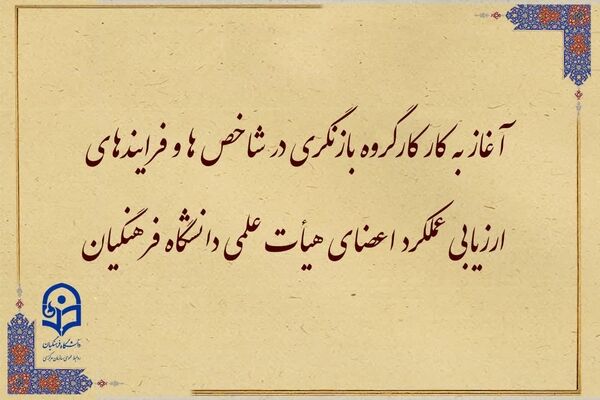 آغاز به کار کارگروه بازنگری در شاخص ها و فرایندهای
ارزیابی عملکرد اعضای هیأت علمی دانشگاه فرهنگیان
دانشگاه فرهنگیان
روابط عمومی سازمان مرکزی